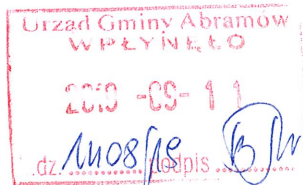 Urząd Gminy Abramów
WPŁYNĘŁO
2019 -09- 11
dz. 1408/19 podpis